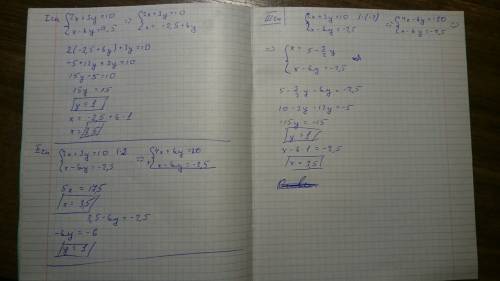 I сп. { 2x + 3y = 10 ⇒ { 2x + 3y = 10
x - 6y = -2,5 x = -2,5 + 6y
2(-2,5 + 6y) + 3y = 10
-5 + 12y + 3y = 10
15y - 5 = 10
15y = 15
y = 1
x = -2,5 + 6·1
x = 3,5
II сп. { 2x + 3y = 10 |·2 ⇒ { 4x + 6y = 20
x - 6y = -2,5 x - 6y = -2,5
5x = 17,5
x = 3,5
3,5 - 6y = -2,5
-6y = -6
y = 1
III сп. { 2x + 3y = 10 ⇒
x - 6y = -2,5
⇒ { x = 5 - 3/2 y
x - 6y = -2,5
5 - 3/2 y - 6y = -2,5
10 - 3y - 12y = -5
-15y = -15
y = 1
x - 6·1 = -2,5
x = 3,5